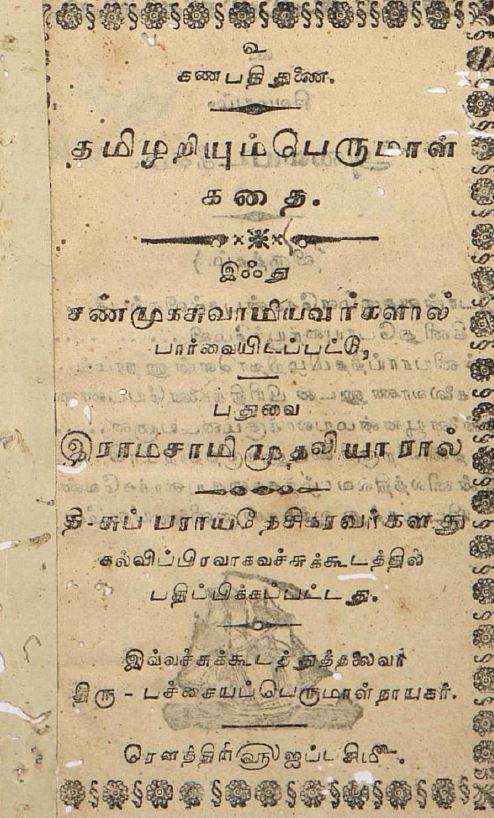 உ
கணபதி துணை.
தமிழறியும்பெருமாள்
கதை.
இஃது
சண்முகசுவாமியவர்களால்
பார்வையிடப்பட்டு,
புதுவை
இராமசாமி முதலியாரால்
தி-சுப்பராயதேசிகரவர்களது
கல்விப்பிரவாகவச்சுக்கூடத்தில்
பதிப்பிக்கப்பட்டது.
இவ்வச்சுக்கூடத்துத்தலைவர்
திரு-பச்சையப்பெருமாள்நாயகர்.
ரௌத்திரி௵ ஐப்பசி௴.